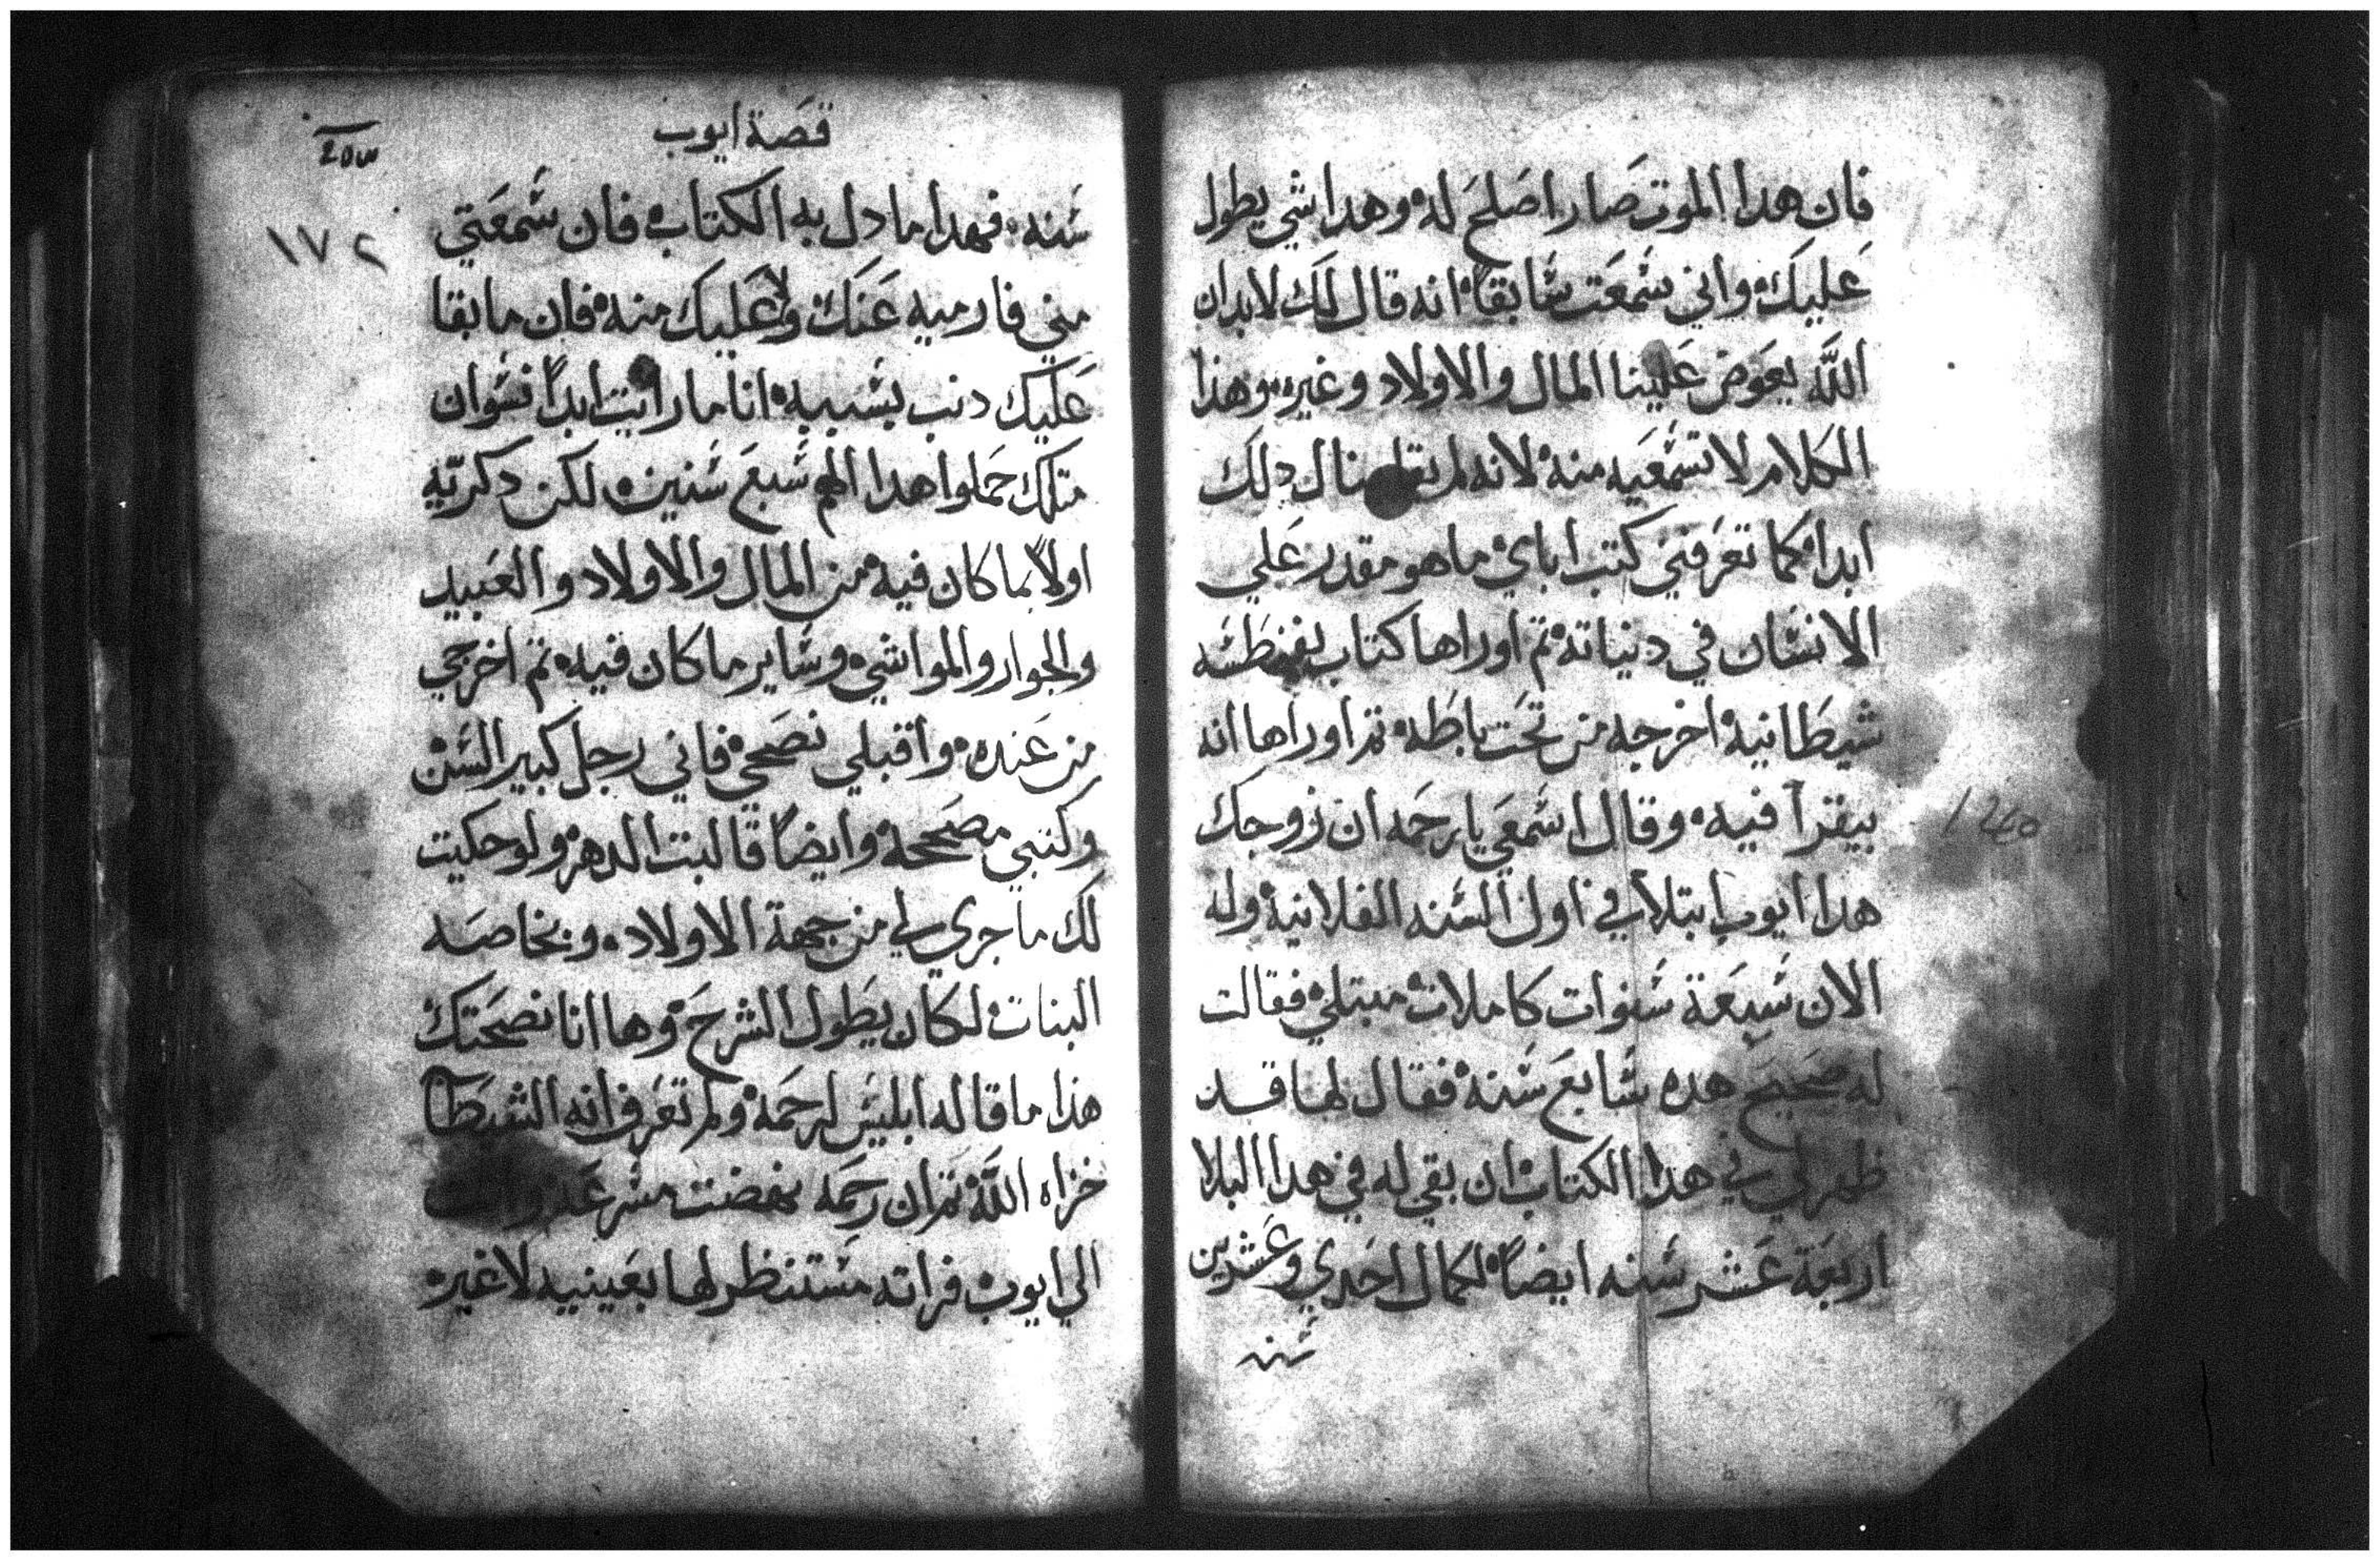 فان هدا الموت صار اصلح له وهدا شي يطول
عليك واني سمعت سابقا انه قال لك لابد ان
اللّه يعوض علينا المال والاولاد وغيره وهذا
الكلام لا تسمعيه منه لانه لم دلك
ابدا كما تعرفني كتب اباي ما هو مقدر علي
الانسان في دنياته تم اوراها كتاب
شيطانية اخرجه من تحت باطه تم اوراها انه
بيقرا فيه وقال اسمعي يا رحمه ان زوجك
هدا ايوب ابتلا في اول السنه الفلانية وله
الان سبعة سنوات كاملات مبتلي فقالت
له صحيح هده سابع سنه فقال لها قد
ظهر لي في هدا الكتاب ان بقي له في هدا البلا
اربعة عشر سنه ايضاً لكمال احدي وعشرين
سنه
قصة ايوب
١٧٢
سنه فهدا ما دل به الكتاب فان سمعتي
مني فارميه عنك ولا عليك منه فان ما بقا
عليك دنب بسببه انا ما رايت ابداً نسوان
متلك حملوا هدا الهم سبع سنين لكن دكريه
اولاً بما كان فيه من المال والاولاد والعبيد
والجوار والمواشي وساير ما كان فيه تم اخرجي
من عنده واقبلي نصحي فاني رجل كبير السن
وكتبي مصححة وايضاً قالبت الدهر ولو حكيت
لك ما جري لي من جهة الاولاد وبخاصه
البنات لكان يطول الشرح وها انا نصحتك
هذا ما قاله ابليس لرحمه ولم تعرف انه الشيطا
خزاه اللّه تم ان رحمه نهضت مسرعه واتت
الي ايوب فراته مستنظر لها بعينيه لا غير
1240